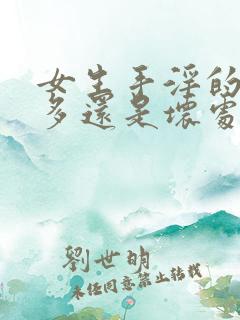 女生手淫的
多還是壞處
劉世明
未经同意禁止转载